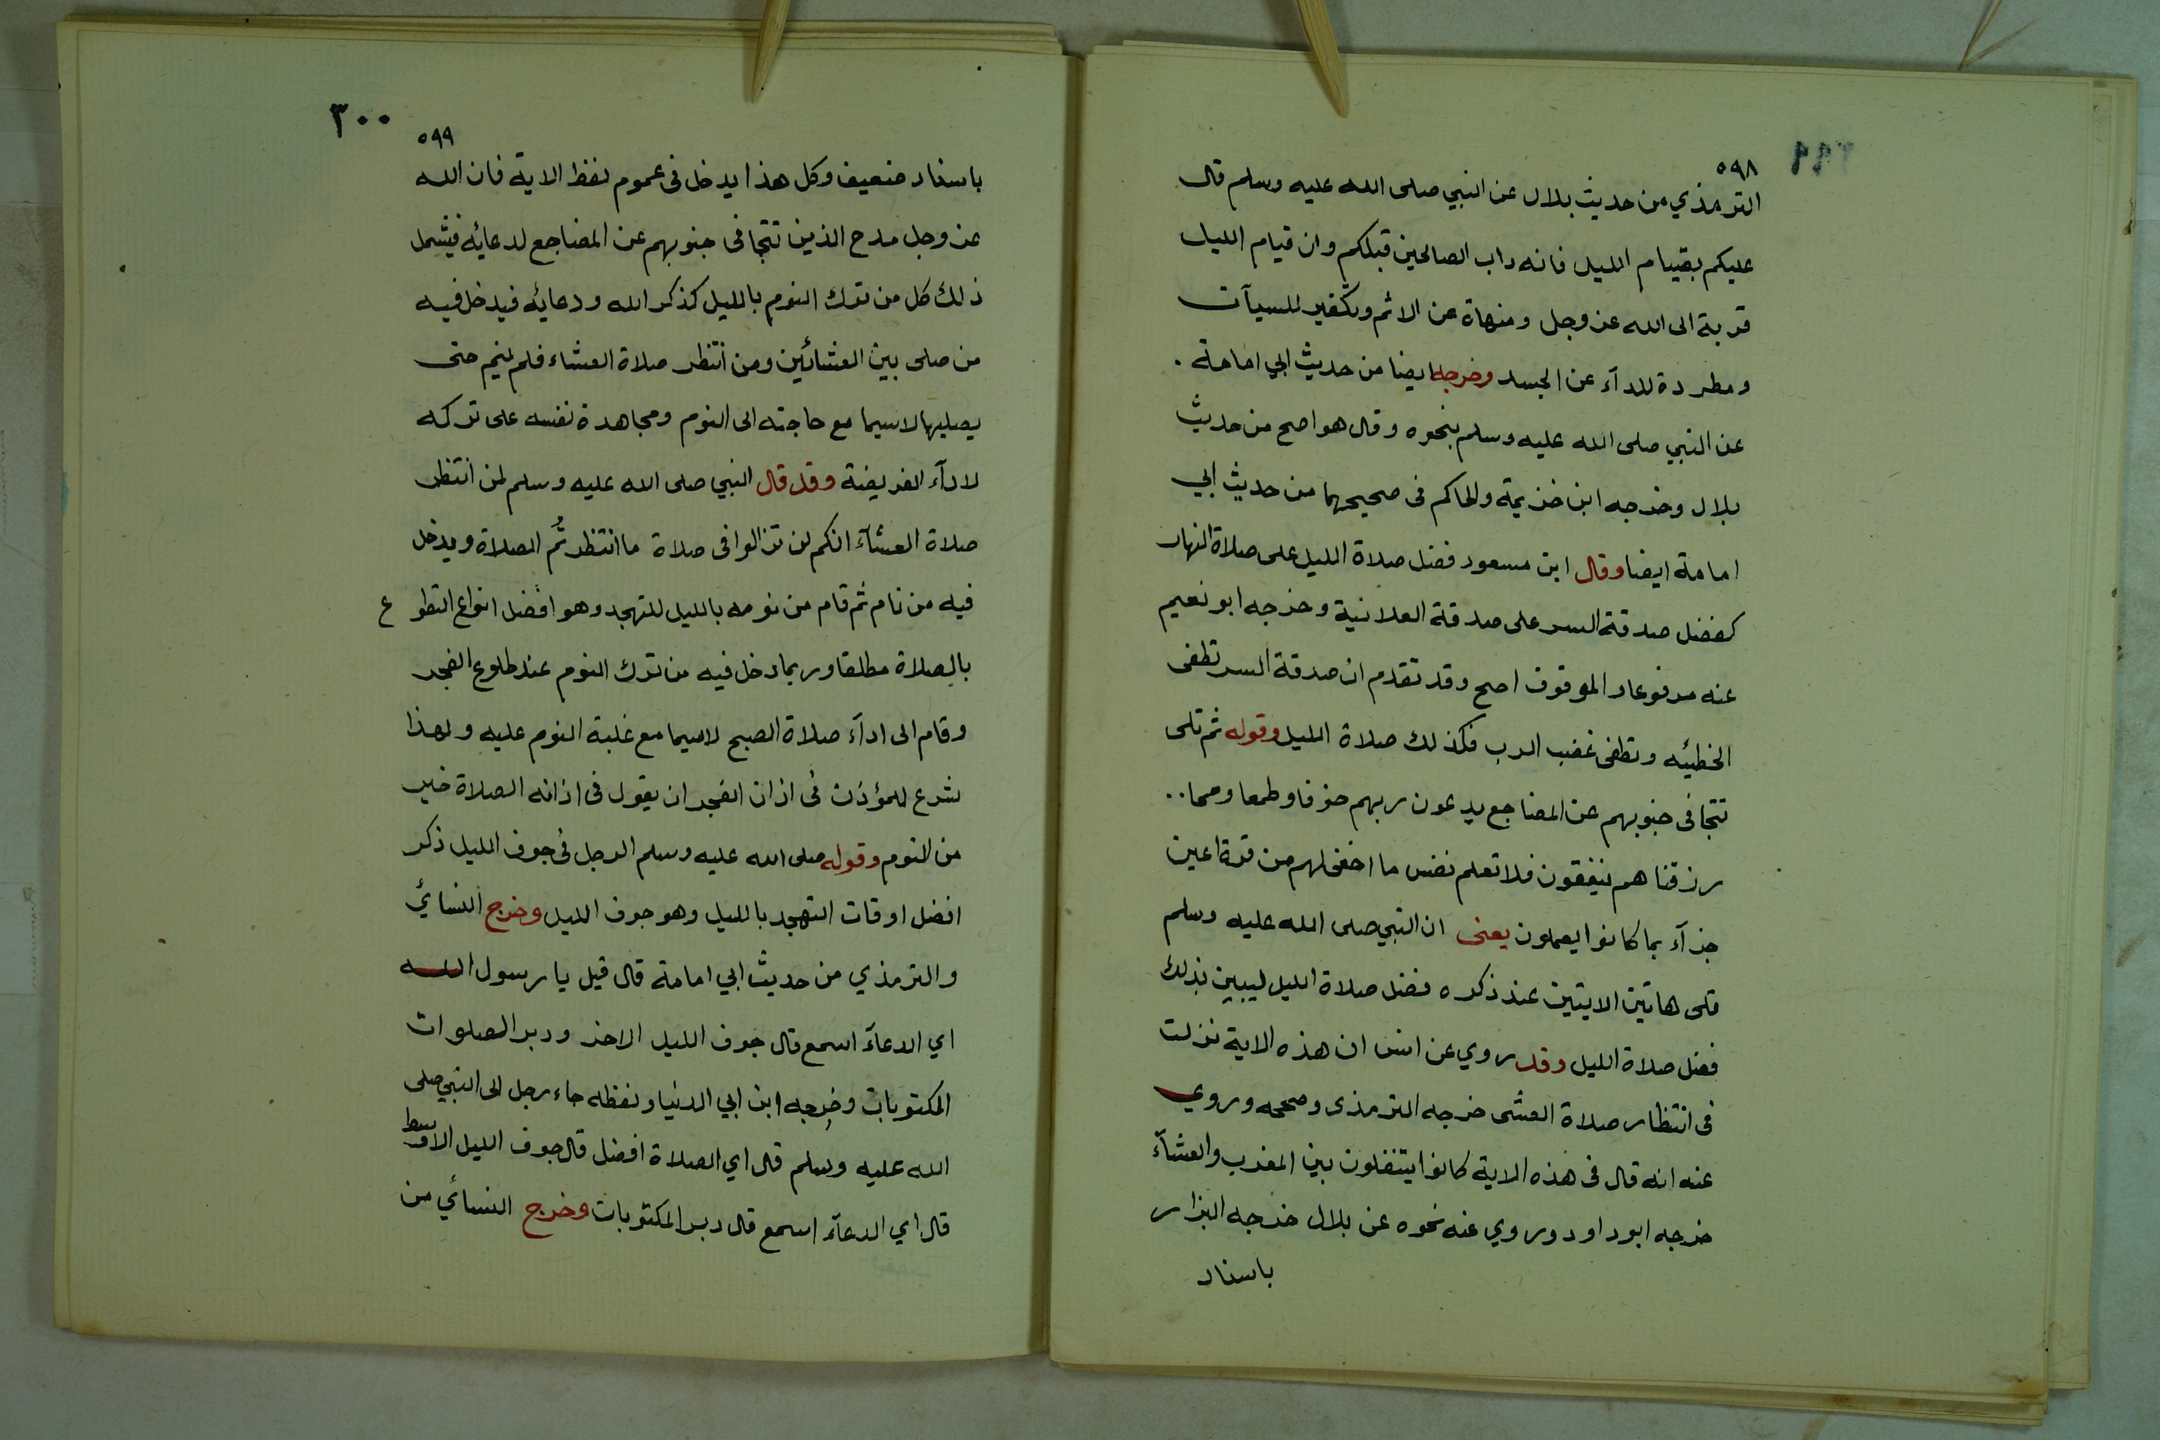 ٥٩٨
الترمذي من حديث بلال عن النبي صلى الله عليه وسلم قال
عليكم بقيام الليل فانه داب الصالحين قبلكم وان قيام الليل
قربة الى الله عز وجل ومنهاة عن الاثم وتكفير للسيآت
ومطردة للدآء عن الجسد وخرجه ايضا من حديث ابي امامة .
عن النبي صلى الله عليه وسلم بنحوه وقال هو اصح من حديث
بلال وخرجه ابن خزيمة والحاكم فى صحيحهما من حديث ابي
امامة ايضا وقال ابن مسعود فضل صلاة الليل على صلاة النهار
كفضل صدقة السر على صدقة العلانية وخرجه ابو نعيم
عنه مرفوعا والموقوف اصح وقد تقدم ان صدقة السر تطفى
الخطيئه وتطفى غضب الرب فكذلك صلاة الليل وقوله ثم تلى
تتجافى جنوبهم عن المضاجع يدعون ربهم خوفا وطمعا ومما..
رزقناهم ينفقون فلا تعلم نفس ما اخفى لهم من قرة اعين
جزآء بما كانوا يعملون يعنى ان النبي صلى الله عليه وسلم
تلى هاتين الايتين عند ذكره فضل صلاة الليل ليبين بذلك
فضل صلاة الليل وقد روي عن انس ان هذه الاية نزلت
فى انتظار صلاة العشى خرجه الترمذى وصححه وروي
عنه انه قال فى هذه الاية كانوا يتنفلون بين المغرب والعشآء
خرجه ابو داود وروي عنه نحوه عن بلال خرجه البزار
باسناد
٣٠٠
٥٩٩
باسناد ضعيف وكل هذا يدخل فى عموم لفظ الاية فان الله
عز وجل مدح الذين تتجافى جنوبهم عن المضاجع لدعائه فيشمل
ذلك كل من ترك النوم بالليل كذكر الله ودعائه فيدخل فيه
من صلى بين العشائين ومن انتظر صلاة العشاء فلم ينم حتى
يصليها لاسيما مع حاجته الى النوم ومجاهدة نفسه على تركه
لادآء الفريضة وقد قال النبي صلى الله عليه وسلم لمن انتظر
صلاة العشآء انكم لن تزالوا فى صلاة ما انتظرتُم الصلاة ويدخل
فيه من نام ثم قام من نومه بالليل للتهجد وهو افضل انواع التطوع
بالصلاة مطلقا وربما دخل فيه من ترك النوم عند طلوع الفجر
وقام الى ادآء صلاة الصبح لاسيما مع غلبة النوم عليه ولهذا
شرع للمؤذن فى اذان الفجر ان يقول فى اذانه الصلاة خير
من النوم وقوله صلى الله عليه وسلم الرجل فى جوف الليل ذكر
افضل اوقات التهجد بالليل وهو جوف الليل وخرج النسائي
والترمذي من حديث ابي امامة قال قيل يا رسول الله
اي الدعآء اسمع قال جوف الليل الاخر ودبر الصلوات
المكتوبات وخرجه ابن ابي الدنيا ولفظه جاء رجل الى النبي صلى
الله عليه وسلم قال اي الصلاة افضل قال جوف الليل الاوسط
قال اي الدعآء اسمع قال دبر المكتوبات وخرج النسائي من